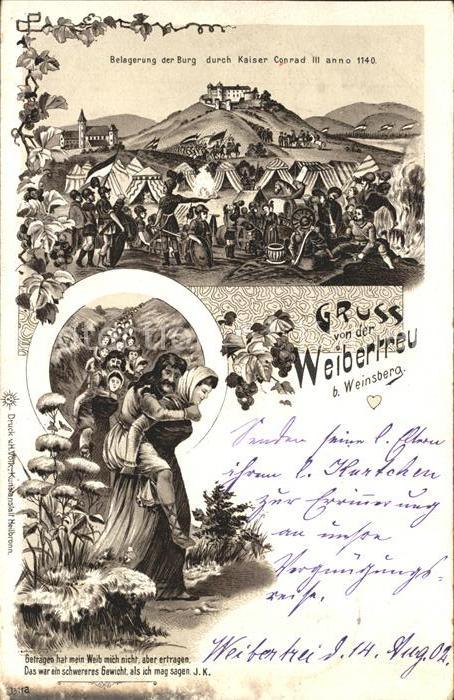 Belagerung der Burg durch Kaiser Conrad III anno 1140.
Gruss
von der
Weibertreu
b. Weinsberg.
Senden seine l. Eltern
ihrem l. Kurtchen
zur Erinnerung
an unsre
Vergnügungs-
reise.
Weibertrei d. 14. Aug. 02.
Druck v. H. Volk, Kunstanstalt Heilbronn.
Getragen hat mein Weib mich nicht, aber ertragen,
Das war ein schwereres Gewicht, als ich mag sagen. J. K.